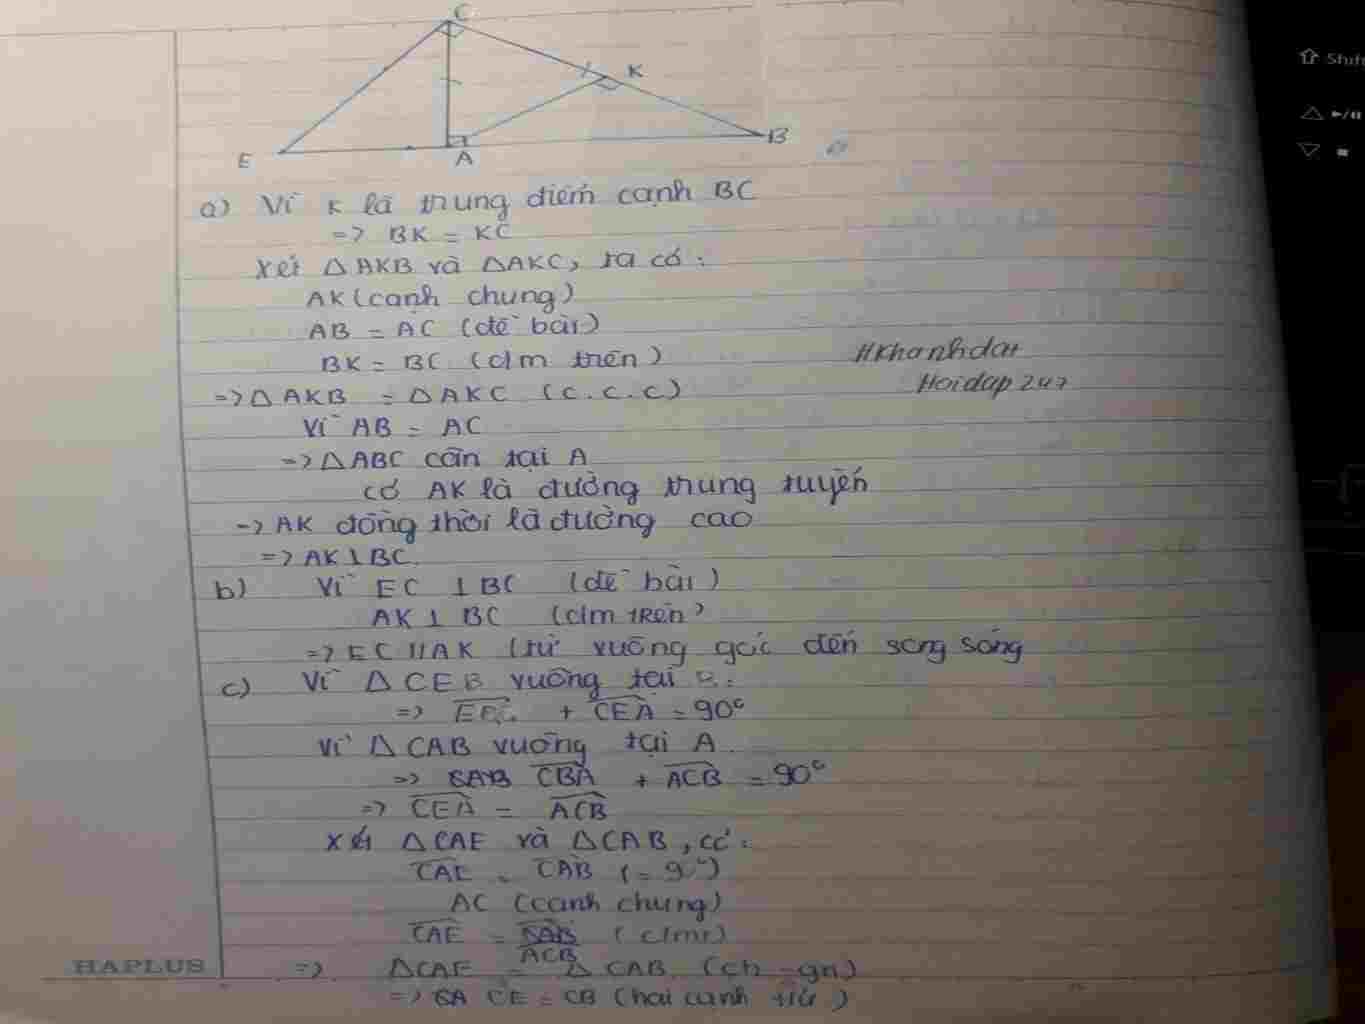 C
K
E
A
B
a) Vì K là trung điểm cạnh BC
=> BK = KC
Xét △AKB và △AKC, ta có:
AK (cạnh chung)
AB = AC (đề bài)
BK = BC (c/m trên)
=> △AKB = △AKC (c.c.c)
Vì AB = AC
=> △ABC cân tại A
có AK là đường trung tuyến
=> AK đồng thời là đường cao
=> AK ⊥ BC.
#Khanhdat
Hoidap247
b) Vì EC ⊥ BC (đề bài)
AK ⊥ BC (c/m trên)
=> EC // AK (từ vuông góc đến song sóng
c) Vì △CEB vuông tại
=> + CEA = 90°
Vì △CAB vuông tại A.
=> CBA + ACB = 90°
=> CEA = ACB
Xét △CAE và △CAB, có:
CAE = CAB (= 90°)
AC (cạnh chung)
CAE = ACB (cmt)
=> △CAE = △CAB (ch - gn)
=> CE = CB (hai cạnh t/ứ)
HAPLUS
Shift